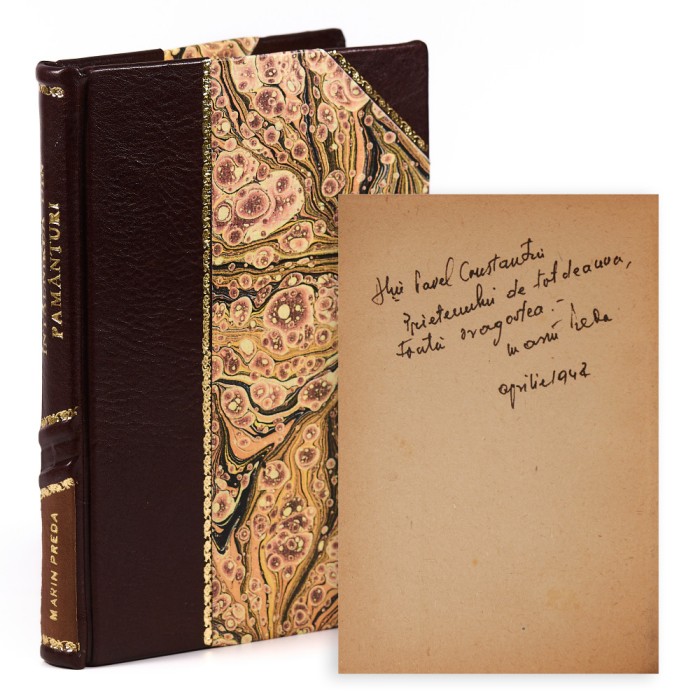 ÎNTÂLNIREA DIN
PĂMÂNTURI
MARIN PREDA
Lui Pavel Constantin
Prietenului de totdeauna,
toată dragostea. –
Marin Preda
aprilie 1948